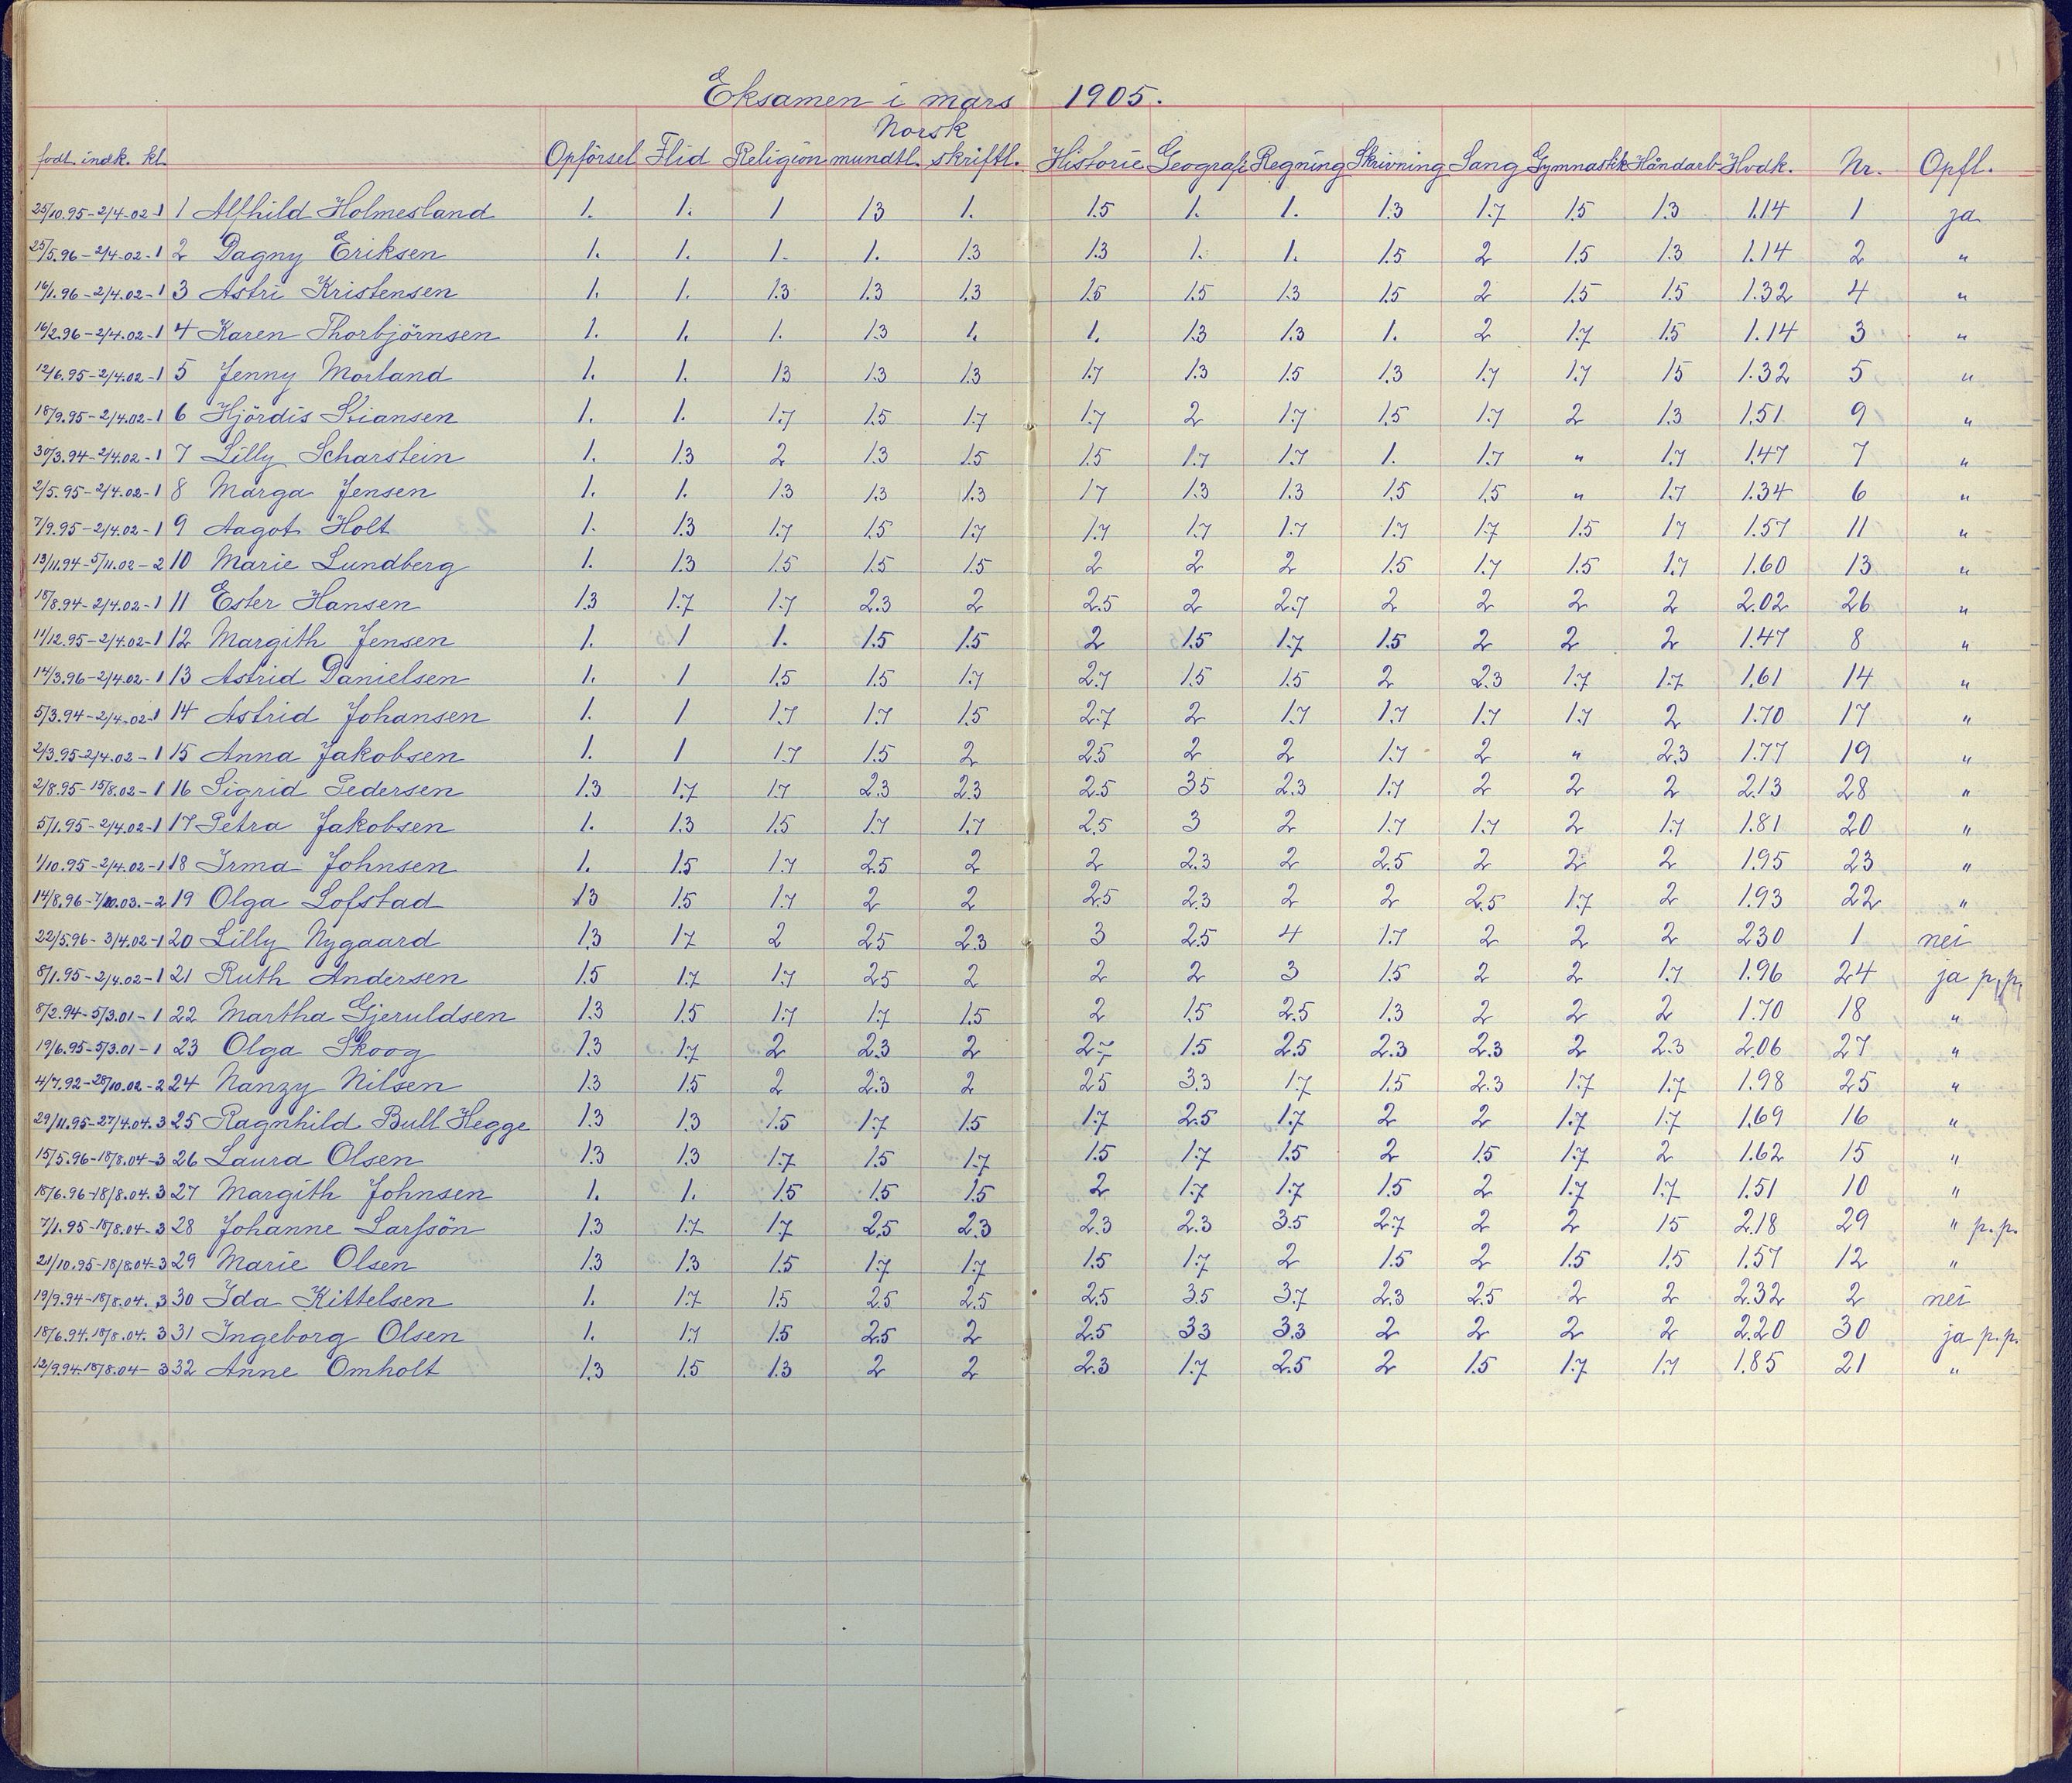 Eksamen i mars 1905.
Norsk
født. indk. kl. Opförsel Flid Religion mundtl. skriftl. Historie Geografi Regning Skrivning Sang Gymnastik Håndarb. Hvdk. Nr. Opfl.
25/10.95-2/4-02-1 1 Alfhild Holmesland 1. 1. 1 1.3 1. 1.5 1. 1. 1.3 1.7 1.5 1.3 1.14 1 ja
25/5.96-2/4-02-1 2 Dagny Eriksen 1. 1. 1. 1. 1.3 1.3 1. 1. 1.5 2 1.5 1.3 1.14 2 "
16/1.96-2/4.02-1 3 Astri Kristensen 1. 1. 1.3 1.3 1.3 1.5 1.5 1.3 1.5 2 1.5 1.5 1.32 4 "
16/2.96-2/4.02-1 4 Karen Thorbjörnsen 1. 1. 1. 1.3 1. 1. 1.3 1.3 1. 2 1.7 1.5 1.14 3 "
12/6.95-2/4.02-1 5 Jenny Morland 1. 1. 1.3 1.3 1.3 1.7 1.3 1.5 1.3 1.7 1.7 1.5 1.32 5 "
18/9.95-2/4.02-1 6 Hjördis Stiansen 1. 1. 1.7 1.5 1.7 1.7 2 1.7 1.5 1.7 2 1.3 1.51 9 "
30/3.94-2/4.02-1 7 Lilly Scharstein 1. 1.3 2 1.3 1.5 1.5 1.7 1.7 1. 1.7 " 1.7 1.47 7 "
2/5.95-2/4.02-1 8 Marga Jensen 1. 1. 1.3 1.3 1.3 1.7 1.3 1.3 1.5 1.5 " 1.7 1.34 6 "
7/9.95-2/4.02-1 9 Aagot Holt 1. 1.3 1.7 1.5 1.7 1.7 1.7 1.7 1.7 1.7 1.5 1.7 1.57 11 "
13/11.94-5/11.02-2 10 Marie Lundberg 1. 1.3 1.5 1.5 1.5 2 2 2 1.5 1.7 1.5 1.7 1.60 13 "
18/8.94-2/4.02-1 11 Ester Hansen 1.3 1.7 1.7 2.3 2 2.5 2 2.7 2 2 2 2 2.02 26 "
11/12.95-2/4.02-1 12 Margith Jensen 1. 1 1. 1.5 1.5 2 1.5 1.7 1.5 2 2 2 1.47 8 "
14/3.96-2/4.02-1 13 Astrid Danielsen 1. 1 1.5 1.5 1.7 2.7 1.5 1.5 2 2.3 1.7 1.7 1.61 14 "
5/3.94-2/4.02-1 14 Astrid Johansen 1. 1 1.7 1.7 1.5 2.7 2 1.7 1.7 1.7 1.7 2 1.70 17 "
2/3.95-2/4.02-1 15 Anna Jakobsen 1. 1 1.7 1.5 2 2.5 2 2 1.7 2 " 2.3 1.77 19 "
2/8.95-15/8.02-1 16 Sigrid Pedersen 1.3 1.7 1.7 2.3 2.3 2.5 3.5 2.3 1.7 2 2 2 2.13 28 "
5/1.95-2/4.02-1 17 Petra Jakobsen 1. 1.3 1.5 1.7 1.7 2.5 3 2 1.7 1.7 2 1.7 1.81 20 "
1/10.95-2/4.02-1 18 Irma Johnsen 1. 1.5 1.7 2.5 2 2 2.3 2 2.5 2 2 2 1.95 23 "
14/8.96-7/10.03.-2 19 Olga Lofstad 1.3 1.5 1.7 2 2 2.5 2.3 2 2 2.5 1.7 2 1.93 22 "
22/5.96-3/4.02-1 20 Lilly Nygaard 1.3 1.7 2 2.5 2.3 3 2.5 4 1.7 2 2 2 2.30 1 nei
8/1.95-2/4.02-1 21 Ruth Andersen 1.5 1.7 1.7 2.5 2 2 2 3 1.5 2 2 1.7 1.96 24 ja p.p.
8/2.94-5/3.01-1 22 Martha Gjeruldsen 1.3 1.5 1.7 1.7 1.5 2 1.5 2.5 1.3 2 2 2 1.70 18 "
19/6.95-5/3.01-1 23 Olga Skoog 1.3 1.7 2 2.3 2 2.7 1.5 2.5 2.3 2.3 2 2.3 2.06 27 "
4/7.92-28/10.02-2 24 Nanzy Nilsen 1.3 1.5 2 2.3 2 2.5 3.3 1.7 1.5 2.3 1.7 1.7 1.98 25 "
29/11.95-27/4.04.3 25 Ragnhild Bull Hegge 1.3 1.3 1.5 1.7 1.5 1.7 2.5 1.7 2 2 1.7 1.7 1.69 16 "
15/5.96-18/8.04-3 26 Laura Olsen 1.3 1.3 1.7 1.5 1.7 1.5 1.7 1.5 2 1.5 1.7 2 1.62 15 "
18/6.96-18/8.04.3 27 Margith Johnsen 1. 1. 1.5 1.5 1.5 2 1.7 1.7 1.5 2 1.7 1.7 1.51 10 "
7/1.95-18/8.04-3 28 Johanne Larssön 1.3 1.7 1.7 2.5 2.3 2.3 2.3 3.5 2.7 2 2 1.5 2.18 29 " p.p.
21/10.95-18/8.04-3 29 Marie Olsen 1.3 1.3 1.5 1.7 1.7 1.5 1.7 2 1.5 2 1.5 1.5 1.57 12 "
19/9.94-18/8.04.3 30 Ida Kittelsen 1. 1.7 1.5 2.5 2.5 2.5 3.5 3.7 2.3 2.5 2 2 2.32 2 nei
18/6.94.18/8.04.3 31 Ingeborg Olsen 1. 1.7 1.5 2.5 2 2.5 3.3 3.3 2 2 2 2 2.20 30 ja p.p.
12/9.94.18/8.04-3 32 Anne Omholt 1.3 1.5 1.3 2 2 2.3 1.7 2.5 2 1.5 1.7 1.7 1.85 21 "